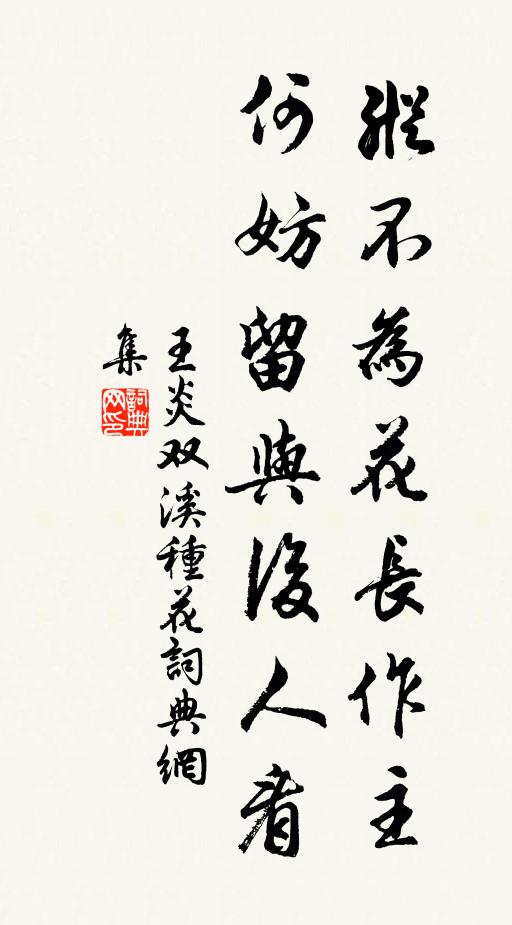 縱不為花長作主
何妨留與後人看
王炎双溪種花詞典網
集
詞典
网印